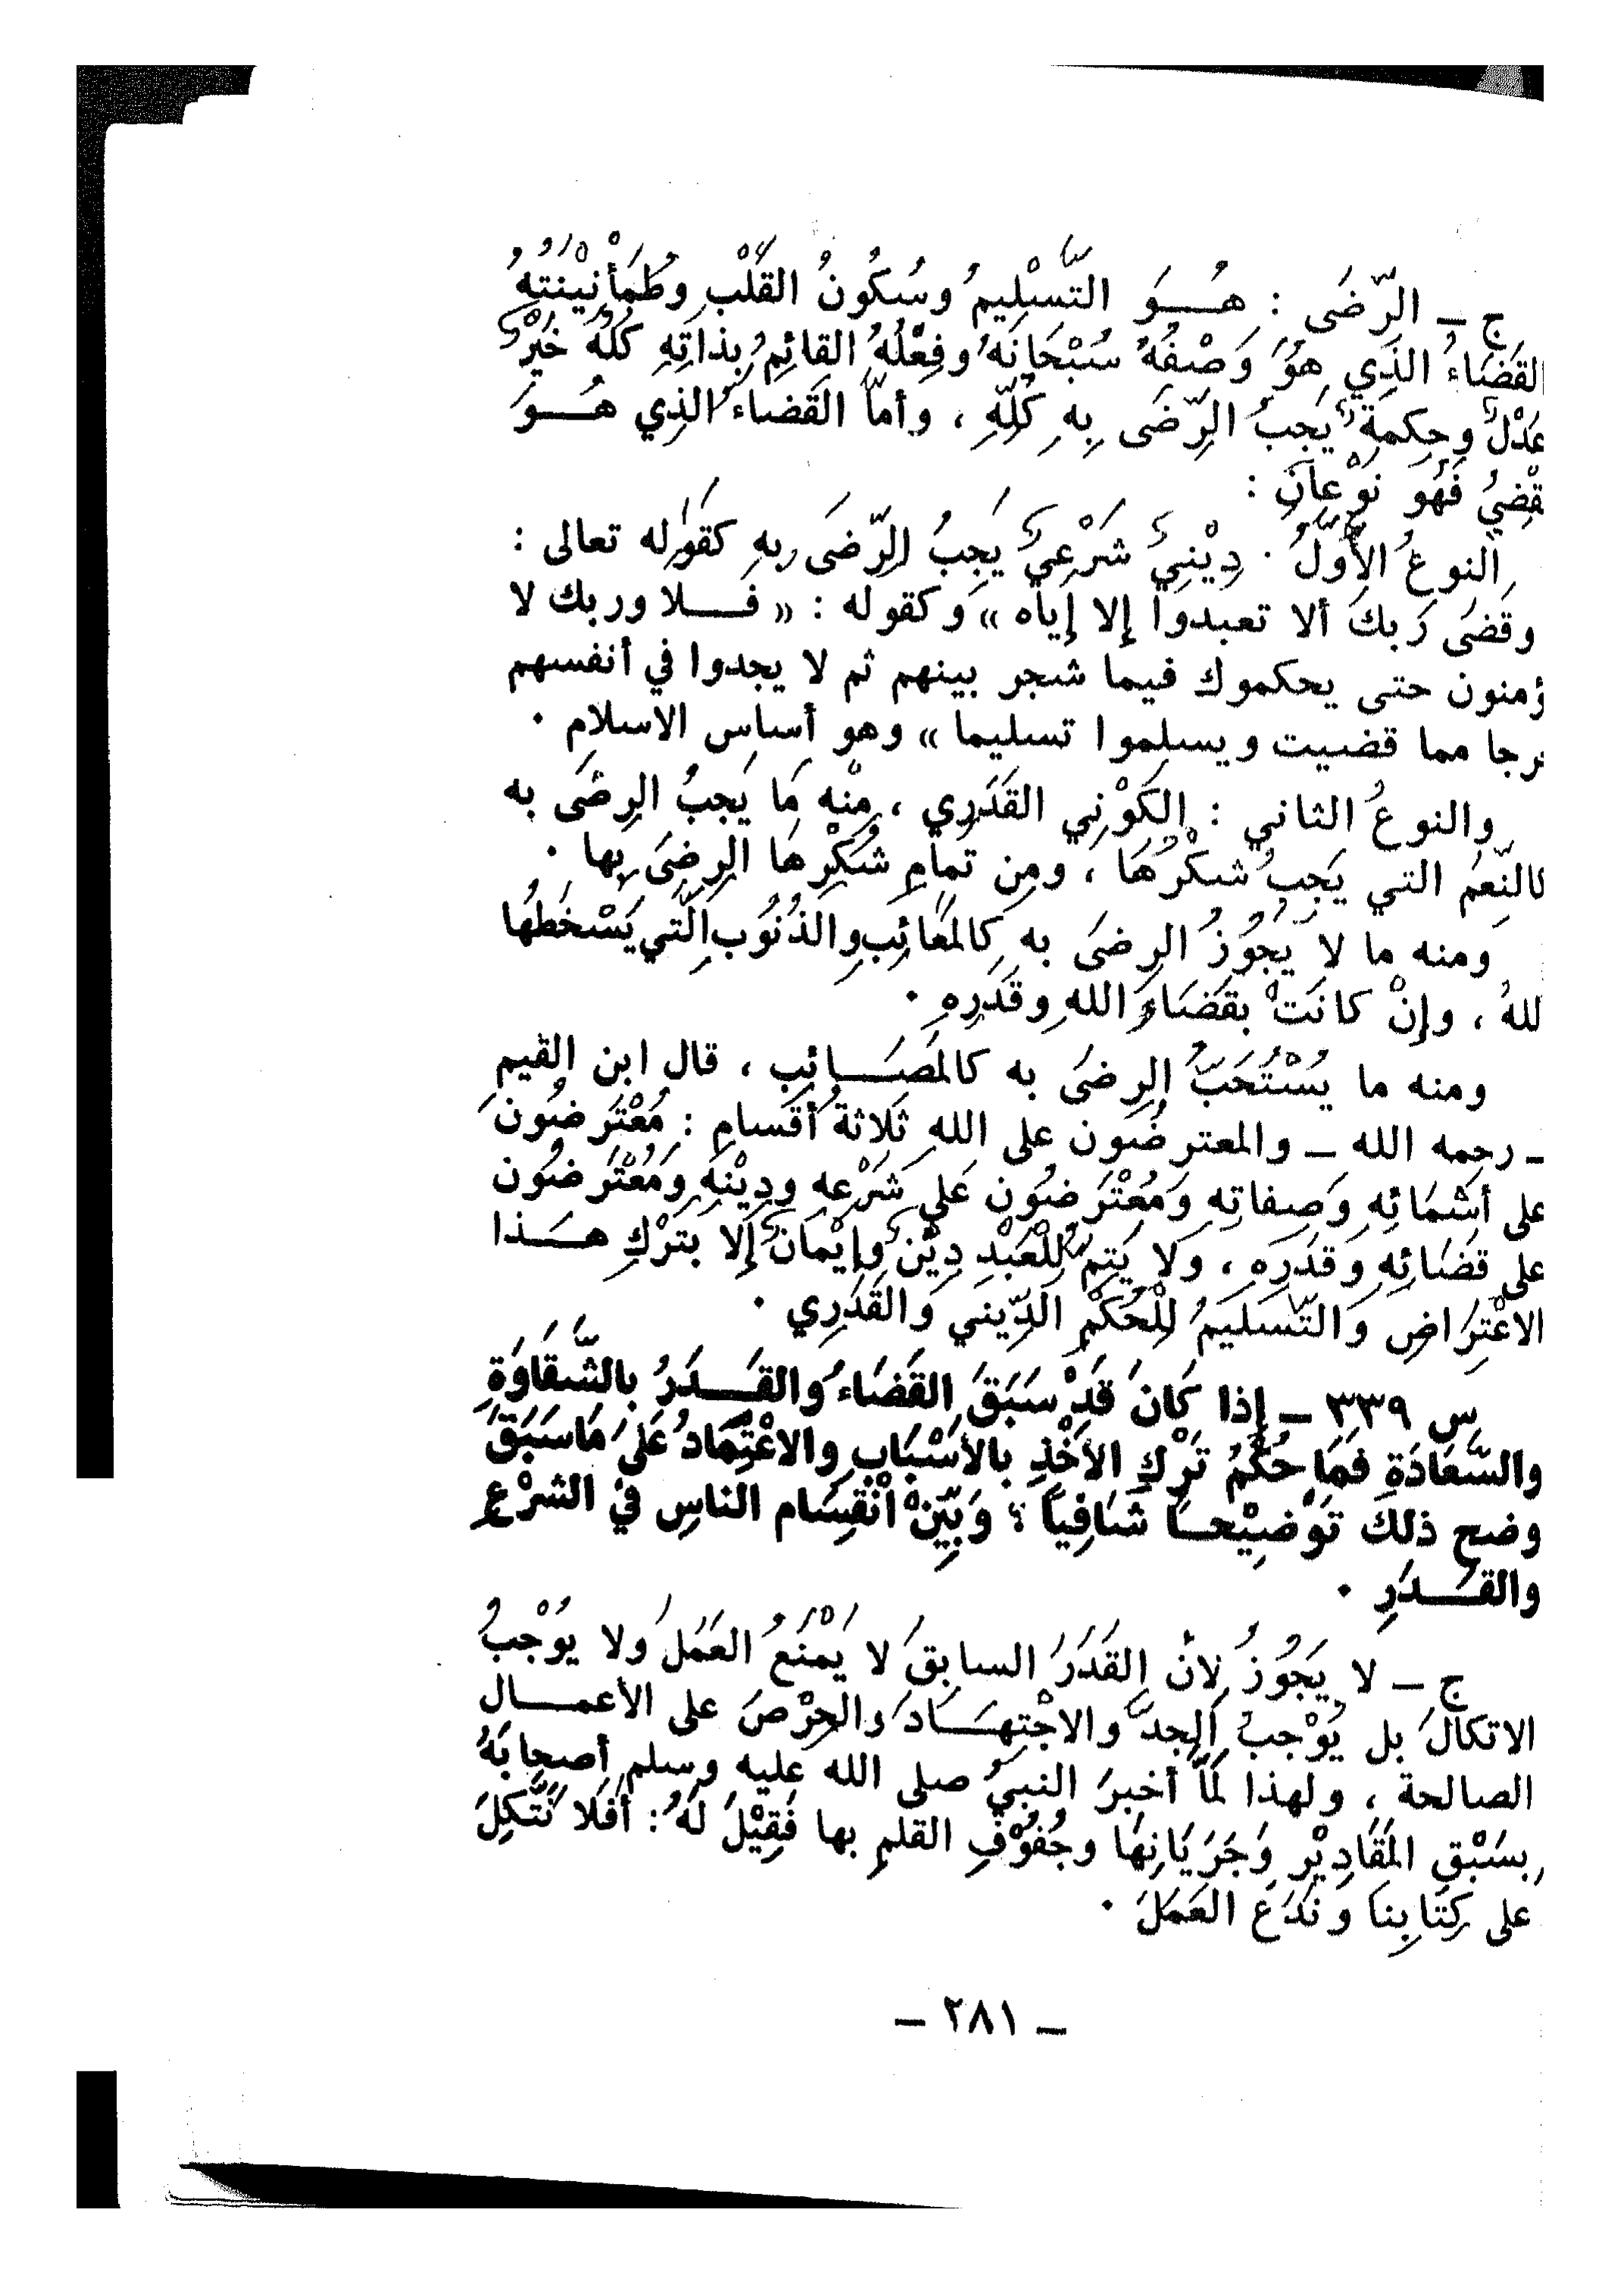 ج ــ الرِّضَى : هُـــوَ التَّسْلِيمُ وسُكُونُ القَلْبِ وطُمَأْنِيْنَتُهُ
القَضَاءُ الذِي هُوَ وَصْفُهُ سُبْحَانَهُ وفِعْلُهُ القائِمُ بِذاتِهِ كُلُّهُ خَيْرٌ
عَدْلٌ وحِكمةٌ يَجِبُ الرِّضَى بِهِ كُلِّهِ ، وأمَّا القَضاءُ الذِي هُـــوَ
قْضِيُّ فَهُو نَوْعَانِ :
النوعُ الأَوَّلُ . دِيْنِيٌّ شَرْعِيٌّ يَجِبُ الرِّضَى بِهِ كقَولِه تعالى :
وقَضَى رَبكَ ألا تعبدوا إلا إياه » وكقوله : « فـــلا وربك لا
ؤمنون حتى يحكموك فيما شجر بينهم ثم لا يجدوا في أنفسهم
رجا مما قضيت ويسلموا تسليما » وهو أساس الاسلام .
والنوعُ الثاني : الكَوْنِي القَدَرِي ، مِنْه مَا يَجِبُ الرِضَى به
كالنِّعَمِ التي يَجِبُ شكْرُهَا ، ومِن تَمامِ شُكْرِهَا الرِضَى بِها .
ومنه ما لا يَجُوزُ الرِضَى به كَالمَعَائِبِ والذُنُوبِ الَّتي يَسْخَطُهَا
للهُ ، وإنْ كانَتْ بقَضَاءِ اللهِ وقَدَرِهِ .
ومنه ما يُسْتَحَبُّ الرِضَى به كالمَصَـــائِبِ ، قال ابن القيم
ـ رحمه الله ــ والمعترِضُون على اللهِ ثَلاثةُ أقسامٍ : مُعْتَرِضُونَ
على أسْمَائِهِ وَصِفاتِهِ وَمُعْتَرِضُون عَلى شَرْعِهِ ودِيْنِهِ وَمُعْتَرِضُون
على قضَائِهِ وقَدَرِهِ ، وَلا يَتِمُّ لِلْعَبْدِ دِيْنٌ وإيْمَانٌ إلا بتَرْكِ هـــذا
الاعْتِرَاضِ وَالتَّسليمُ لِلْحُكْمِ الدِّيني وَالقَدَرِي .
س ٣٣٩ ــ إذا كَانَ قَدْ سَبَقَ القَضَاءُ والقَـــدَرُ بالشَّقاوَةِ
والسَّعَادَةِ فَمَا حُكْمُ تَرْكِ الأخْذِ بالأسْبَابِ والاعْتِمَادُ عَلَى مَا سَبَقَ
وضح ذلكَ تَوْضِيْحـــاً شَافِياً ؟ وَبَيِّنْ انْقِسَام الناسِ في الشرْعِ
والقَـــدَرِ .
ج ــ لا يَجُوزُ لأنَّ القَدَرَ السابِقَ لا يَمْنَعُ العَمَلَ ولا يُوْجِبُ
الاتكالَ بل يُوْجِبُ الجِدَّ والاجْتِهـــادَ والحِرْصَ على الأعمـــال
الصالحة ، ولهذا لَمَّا أخبرَ النبيُّ صلى الله عليه وسلم أصحابَهُ
بِسَبْقِ المَقَادِيْرِ وَجَرَيَانِهَا وجُفُوْفِ القلمِ بها فَقِيْلَ لَهُ : أَفَلا نَتَّكِلَ
على كِتَابِنا وَنَدَعَ العَمَلَ .
ــ ٢٨١ ــ